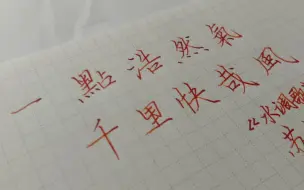 一點浩然氣
千里快哉風
“水調歌
苏